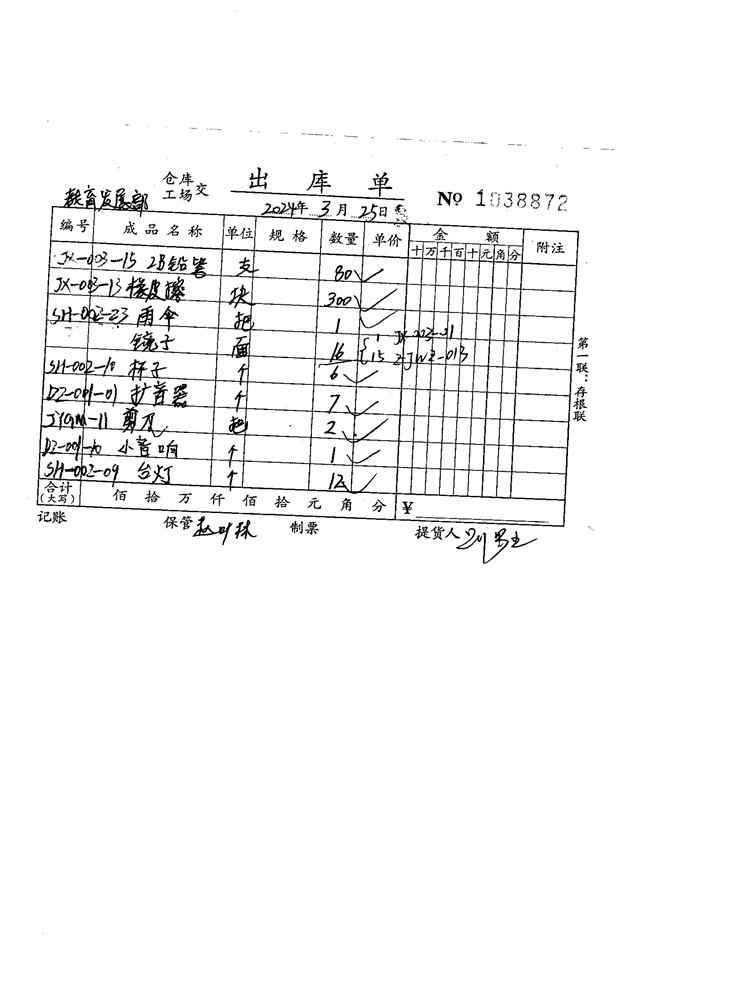 出 库 单
仓库
工场 交
教育发展部
No 1038872
2024年 3月 25日
编号 成品名称 单位 规格 数量 单价 金额 附注
十万千百十元角分
JX-003-15 2B铅笔 支 80
JX-003-13 橡皮擦 块 300
SH-002-23 雨伞 把 1
镜子 面 16 { 1
15 ZJWZ-013
SH-002-10 杯子 个 6
DZ-001-01 扩音器 个 7
剪刀 把 2
小音响 个 1
SH-002-09 台灯 个 12
合计
(大写) 佰 拾 万 仟 佰 拾 元 角 分 ¥
记账 保管 制票 提货人
第一联：存根联